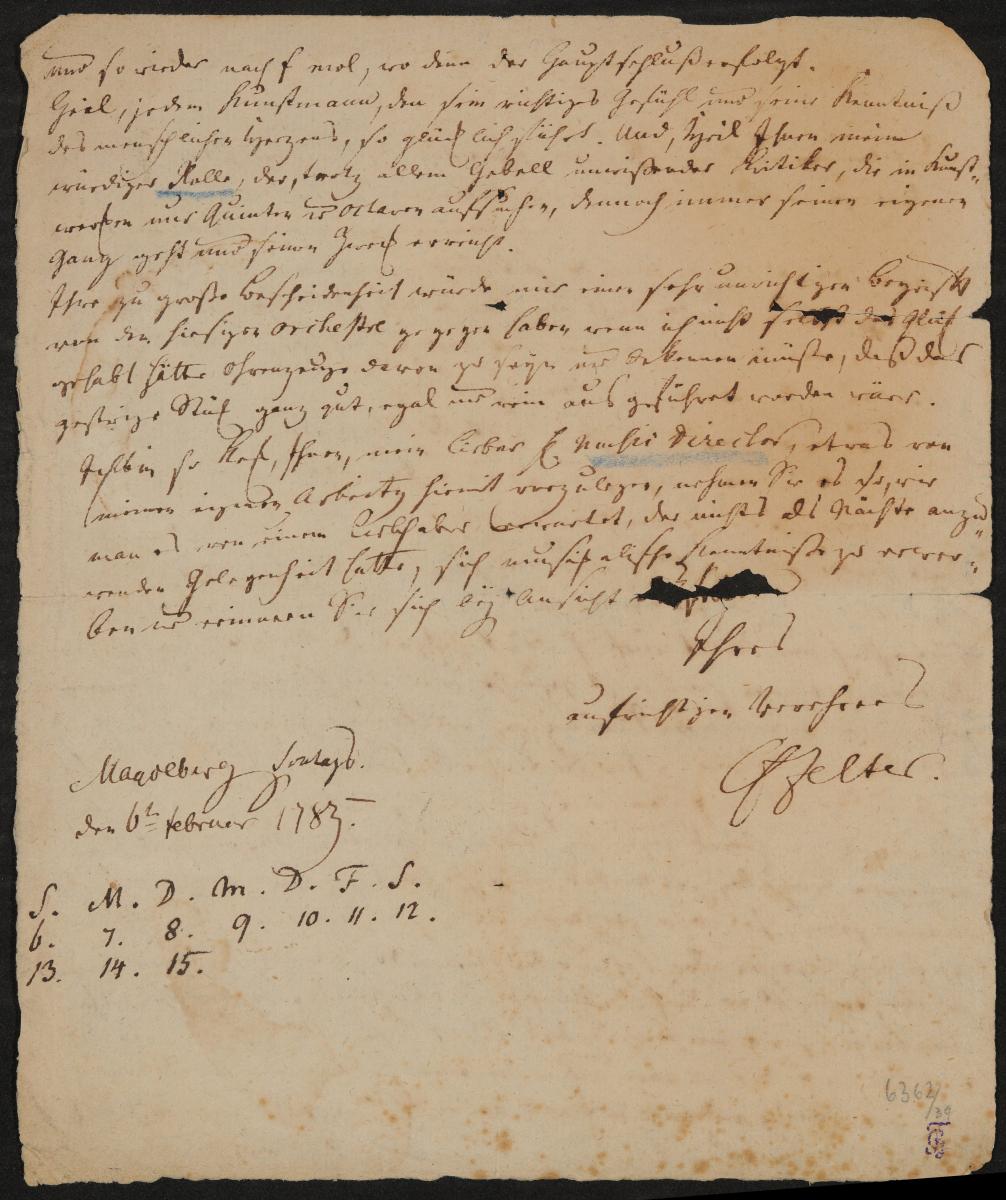 und so wieder nach f mol, wo denn der Hauptschluß erfolgt.
Heil, jedem Kunstmann, den sein richtiges Gefühl und seine Kenntniß
des menschlichen Herzens, so glücklich führt. Und, Heil Ihnen mein
würdiger Rolle, der, trotz allem Gebell unwißender Kritiker, die in Kunst-
werken nur Quinten u Octaven aufsuchen, dennoch immer seinen eigenen
Gang geht und seinen Zweck erreicht.
Ihre zu große Bescheidenheit würde mir einen sehr unrichtigen Begriff
von dem hiesigen Orchester gegeben haben wenn ich nicht selbst das Glück
gehabt hätte Ohrenzeuge davon zu seyn und bekennen müßte, daß das
gestrige Stück ganz gut, egal und rein ausgeführet worden wäre.
Ich bin so keck, Ihnen, mein lieber H. Music Director, etwas von
meinen eignen Arbeiten hiemit vorzulegen, nehmen Sie es so, wie
man es von einem Liebhaber erwartet, der nichts als Nächte anzu-
wenden Gelegenheit hatte, sich musikalische Kenntniße zu erwer-
ben und erinnern Sie sich bey Ansicht
Ihres
aufrichtigen Verehrers
CFZelter.
Magdeburg Sontags.
den 6ten Februar 1783.
S. M. D. M. D. F. S.
6. 7. 8. 9. 10. 11. 12.
13. 14. 15.
6362/39